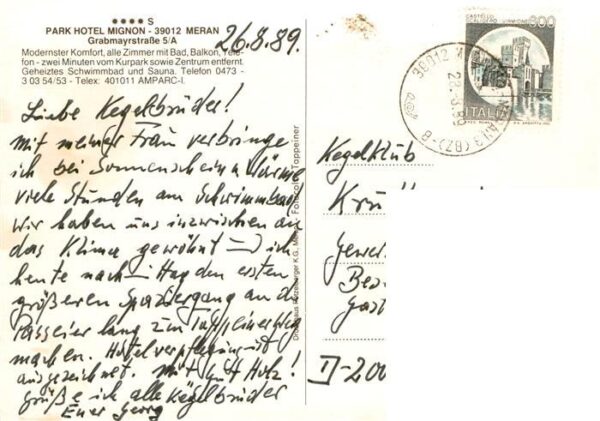 **** S
PARK HOTEL MIGNON - 39012 MERAN
Grabmayrstraße 5/A
Modernster Komfort, alle Zimmer mit Bad, Balkon, Tele-
fon - zwei Minuten vom Kurpark sowie Zentrum entfernt.
Geheiztes Schwimmbad und Sauna. Telefon 0473 -
3 03 54/53 - Telex: 401011 AMPARC-I.
26.8.89.
Liebe Kegelbrüder!
Mit meiner Frau verbringe
ich bei Sonnenschein u Wärme
viele Stunden am Schwimmbad
wir haben uns inzwischen an
das Klima gewöhnt ich
heute nachmittag den ersten
größeren Spaziergang an die
Passeier lang zum Tappeinerweg
machen. Hotelverpflegung ist
ausgezeichnet. Mit Gut Holz!
grüße ich alle Kegelbrüder
Euer Georg
Foto Tappeiner
CASTELLO
300
ITALIA
39012
(BZ)
Kegelklub
Kru
Gewer
Bez
Gast
D-200